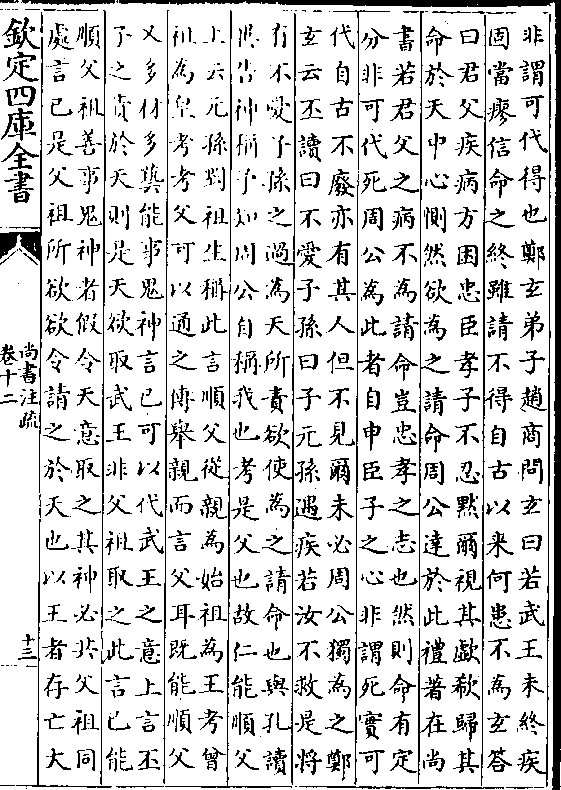 非謂可代得也鄭玄弟子趙商問玄曰若武王未終疾
固當瘳信命之終雖請不得自古以來何患不為玄答
曰君父疾病方困忠臣孝子不忍默爾視其歔欷歸其
命於天中心惻然欲為之請命周公達於此禮著在尚
書若君父之病不為請命豈忠孝之志也然則命有定
分非可代死周公為此者自申臣子之心非謂死實可
代自古不廢亦有其人但不見爾未必周公獨為之鄭
玄云丕讀曰不愛子孫曰子元孫遇疾若汝不救是將
有不愛子孫之過為天所責欲使為之請命也與孔讀
異告神稱予知周公自稱我也考是父也故仁能順父
上云元孫對祖生稱此言順父從親為始祖為王考曾
祖為皇考考父可以通之傳舉親而言父耳既能順父
又多材多藝能事鬼神言己可以代武王之意上言丕
子之責於天則是天欲取武王非父祖取之此言己能
順父祖善事鬼神者假令天意取之其神必共父祖同
處言己是父祖所欲欲令請之於天也以王者存亡大
欽定四庫全書
尚書注疏
卷十二
十三